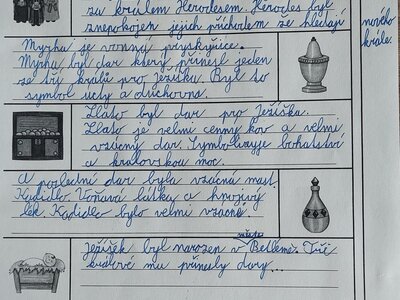 za králem Herodesem. Herodes byl
znepokojen jejich příchodem že hledají
nového
krále.
Myrha je vonná pryskyřice.
Myrha byl dar který přinesl jeden
ze tří králů pro Ježíška. Byl to
symbol úcty a duchovna.
Zlato byl dar pro Ježíška.
Zlato je velmi cenný kov a velmi
vzácný dar. Symbolizuje bohatství
a královskou moc.
A poslední dar byla vzácná mast.
Kadidlo. Voňavá látka a hnojivý
lék Kadidlo bylo velmi vzácné.
městě
Ježíšek byl narozen v Betlémě. Tři
králové mu přinesly dary...